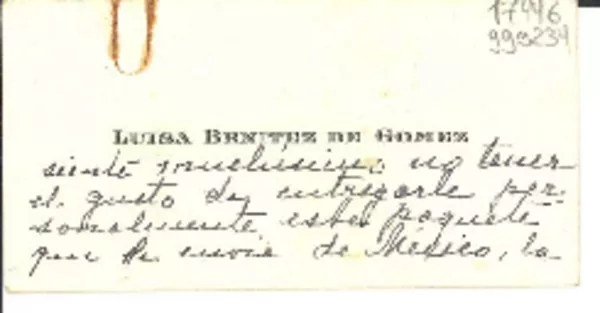 17446
999234
LUISA BENITEZ DE GOMEZ
siente muchísimo no tener
el gusto de entregarle per-
sonalmente este paquete
que le envia de México, la